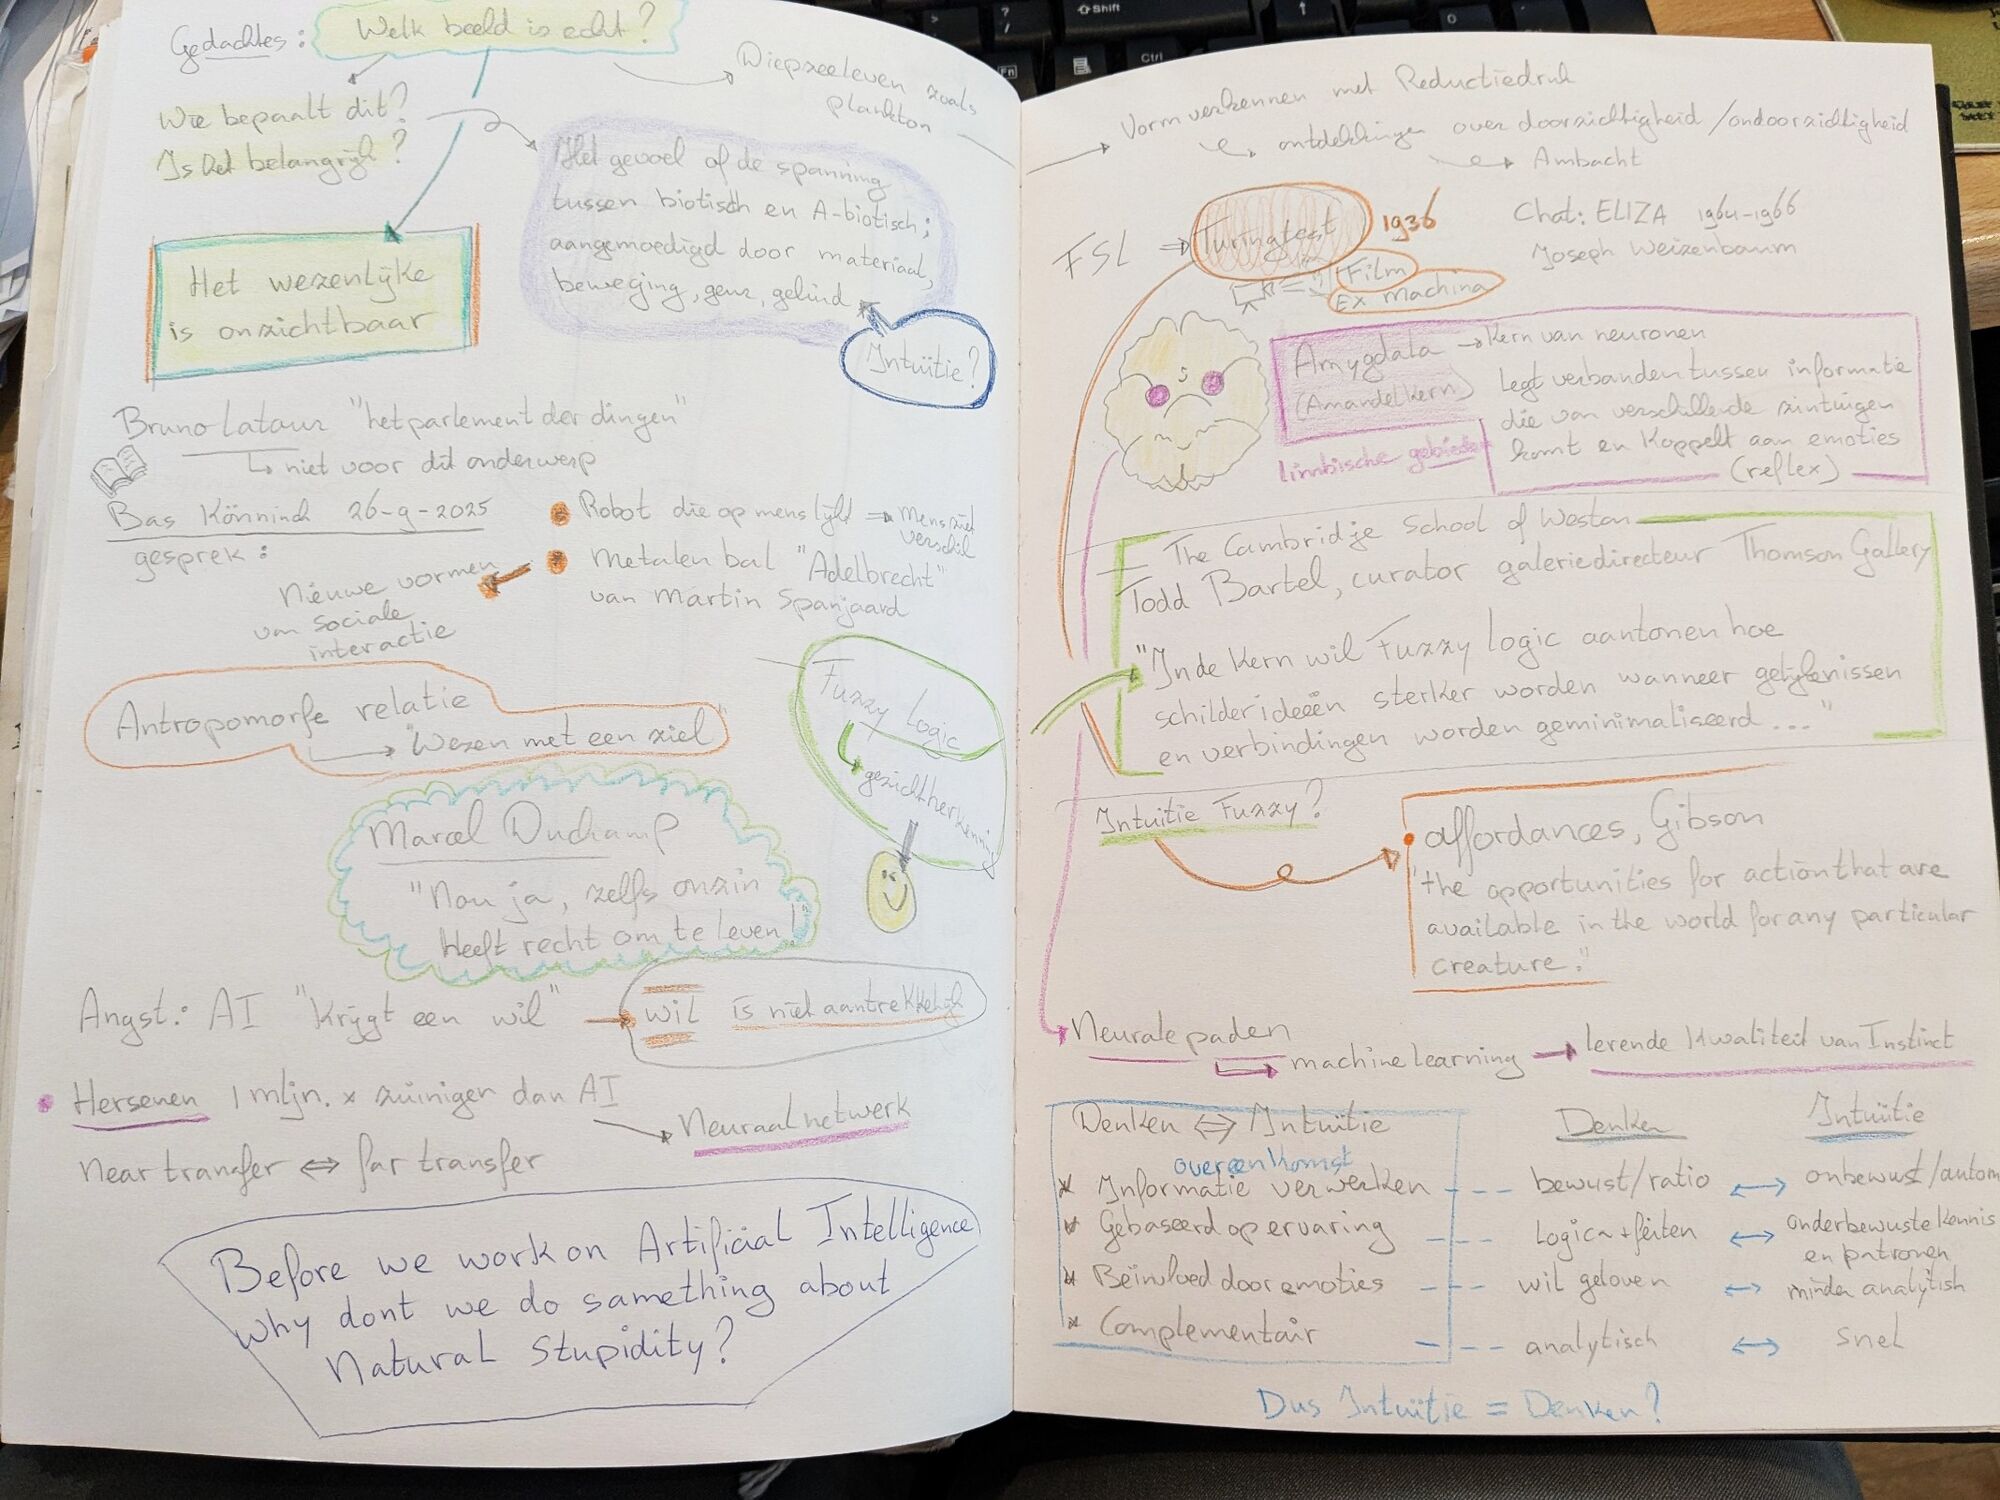 Gedachtes: Welk beeld is echt?
Wie bepaalt dit?
Is het belangrijk?
Diepzeeleven zoals
plankton
Het gevoel of de spanning
tussen biotisch en A-biotisch;
aangemoedigd door materiaal,
beweging, geur, geluid
Intuïtie?
Het wezenlijke
is onzichtbaar
Bruno Latour "het parlement der dingen"
niet voor dit onderwerp
Bas Könninck 26-9-2025
gesprek:
Robot die op mens lijkt ⇒ mens ziet
verschil
Metalen bal "Adelbrecht"
van Martin Spanjaard
Nieuwe vormen
van sociale
interactie
Antropomorfe relatie
"Wezen met een ziel"
Fuzzy Logic
gezichtherkenning
Marcel Duchamp
"Nou ja, zelfs onzin
heeft recht om te leven!"
Angst: AI "Krijgt een wil" → wil is niet aantrekkelijk
Hersenen 1 mljn. x zuiniger dan AI
Neuraal netwerk
Near transfer ⇔ far transfer
Before we work on Artificial Intelligence
why dont we do something about
Natural Stupidity?
Vorm verkennen met Reductiedruk
ontdekkingen over doorzichtigheid / ondoorzichtigheid
Ambacht
FSL ⇒ Turingtest 1936
Film
Ex Machina
Chat: ELIZA 1964-1966
Joseph Weizenbaum
Amygdala → Kern van neuronen
(Amandelkern)
Legt verbanden tussen informatie
die van verschillende zintuigen
komt en koppelt aan emoties
(reflex)
limbische gebieden
The Cambridge School of Weston
Todd Bartel, curator galeriedirecteur Thomson Gallery
"In de Kern wil Fuzzy Logic aantonen hoe
schilderideeën sterker worden wanneer gelijkenissen
en verbindingen worden geminimaliseerd ..."
Intuïtie Fuzzy?
affordances, Gibson
"the opportunities for action that are
available in the world for any particular
creature."
Neurale paden
machine learning → lerende Kwaliteit van Instinct
Denken ⇔ Intuïtie
overeenkomst
Denken Intuïtie
* Informatie verwerken --- bewust/ratio ↔ onbewust/autom
* Gebaseerd op ervaring --- Logica + feiten ↔ onderbewuste kennis
en patronen
* Beïnvloed door emoties --- wil geloven ↔ minder analytish
* Complementair --- analytisch ↔ snel
Dus Intuïtie = Denken?